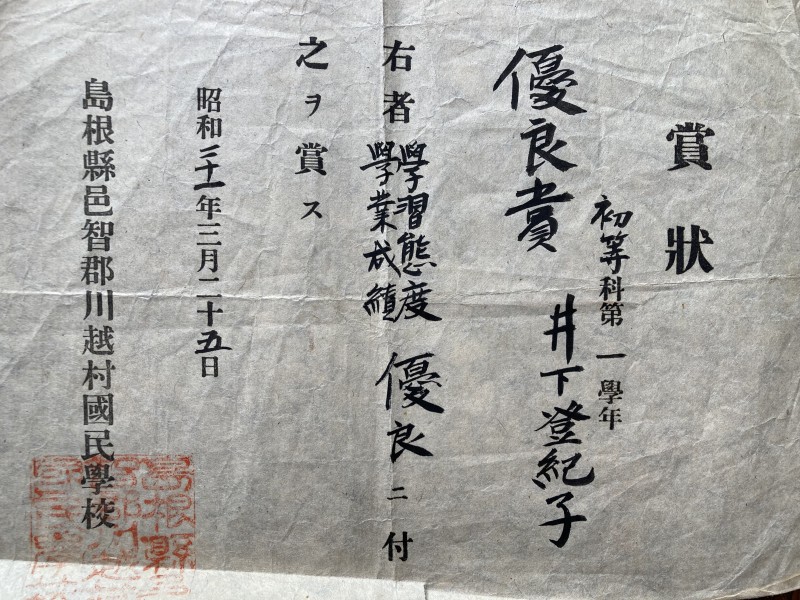 賞狀
初等科第一學年
優良賞 井下登紀子
右者學習態度學業成績優良ニ付
之ヲ賞ス
昭和二十一年三月二十五日
島根縣邑智郡川越村國民學校